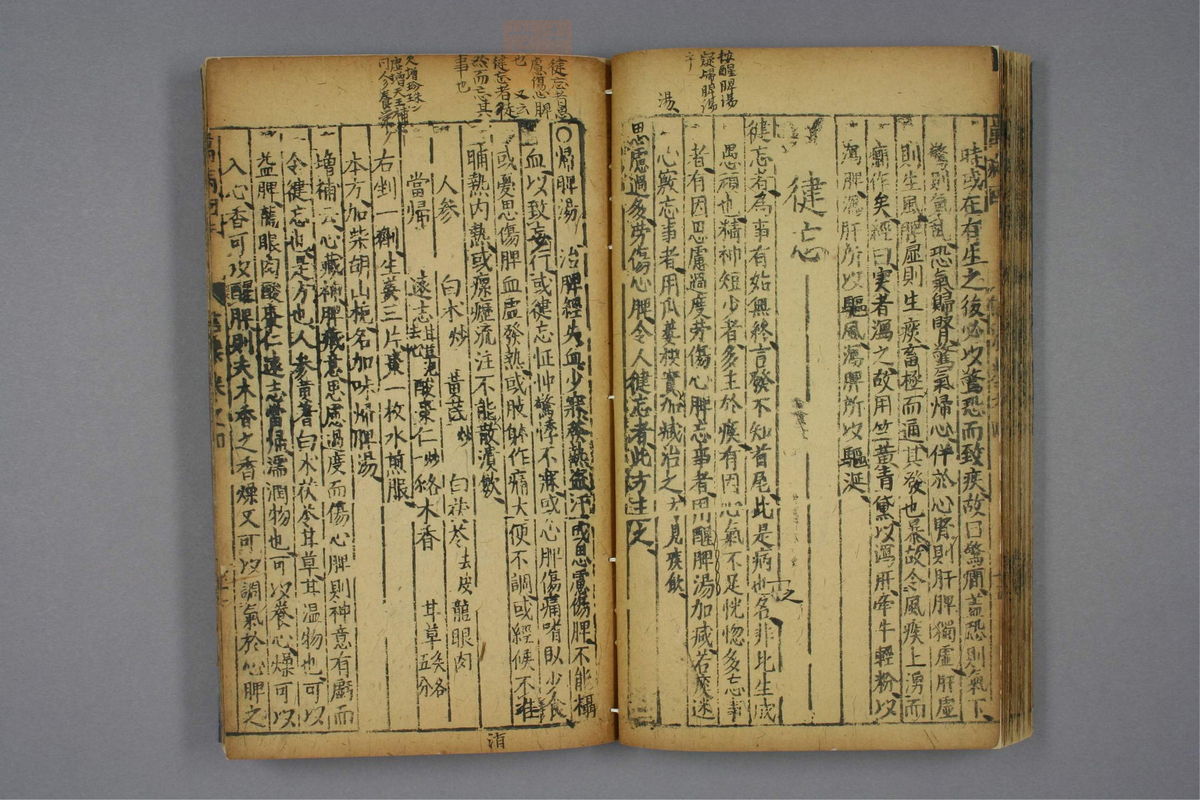 按醒脾湯
疑歸脾湯
湯
時或在有生之後必以驚恐而致疾故曰驚癇蓋恐則氣下
驚則氣亂恐氣歸腎驚氣歸心併於心腎則肝脾獨虛肝虛
則生風脾虛則生痰畜極而通其後也暴故令風痰上湧而
癇作矣經曰実者瀉之故用竺黃青黛以瀉肝牽牛輕粉以
瀉脾瀉肝所以驅風瀉脾所以驅涎
健忘
健忘者為事有始無終言發不知首尾此是病也名非比生成
愚頑也精神短少者多主於痰有因心氣不足恍惚多忘事
者有因思慮過度劳傷心脾忘事者用醒脾湯加减若痰迷
心竅忘事者用瓜蔞枳實加减治之方見痰飲
思慮過多劳傷心脾令人健忘者此方主之
健忘者思
慮傷心脾
也 又云
健忘者陡
然而忘其
事也
又增珍珠
〇歸脾湯 治脾經失血少寐發熱盗汗或思慮傷脾不能攝
血以致妄行或健忘怔忡驚悸不寐或心脾傷痛嗜臥少食
或憂思傷脾血虛發熱或肢体作痛大便不調或經候不准
晡熱内熱或瘰癧流注不能散潰歛
人參 白术炒 黃芪炒 白茯苓去皮 龍眼肉
當歸 遠志 酸棗仁炒 木香 甘草五分
右剉一劑生姜三片棗一枚水煎服
本方加柴胡山梔名加味歸脾湯
增補云心藏神脾藏意思慮過度而傷心脾則神意有虧而
令健忘也是方也人參黃芪白术茯苓甘草甘温物也可以
益脾龍眼肉酸棗仁遠志當歸濡潤物也可以養心燥可以
入心香可以醒脾則夫木香之香燥又可以調氣於心脾之